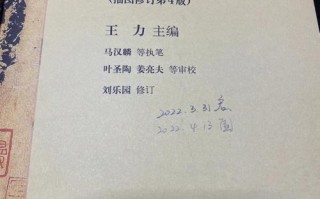 (插图修订第4版)
王 力 主编
马汉麟 等执笔
叶圣陶 姜亮夫 等审校
刘乐园 修订
2022.3.31
2022.4.13